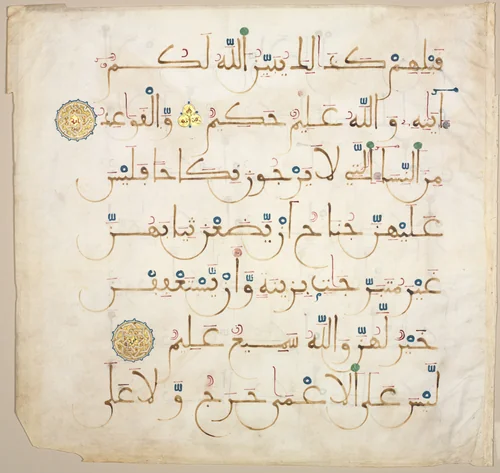 قَبْلِهِمْ كَذَٰلِكَ يُبَيِّنُ اللَّهُ لَكُمُ
ءَايَٰتِهِ وَاللَّهُ عَلِيمٌ حَكِيمٌ وَّالْقَوَٰعِدُ
مِنَ النِّسَاءِ الَّٰتِي لَا يَرْجُونَ نِكَاحًا فَلَيْسَ
عَلَيْهِنَّ جُنَاحٌ أَنْ يَّضَعْنَ ثِيَابَهُنَّ
غَيْرَ مُتَبَرِّجَٰتٍ بِزِينَةٍ وَّأَنْ يَّسْتَعْفِفْنَ
خَيْرٌ لَّهُنَّ وَاللَّهُ سَمِيعٌ عَلِيمٌ
لَّيْسَ عَلَى الْأَعْمَىٰ حَرَجٌ وَّلَا عَلَى